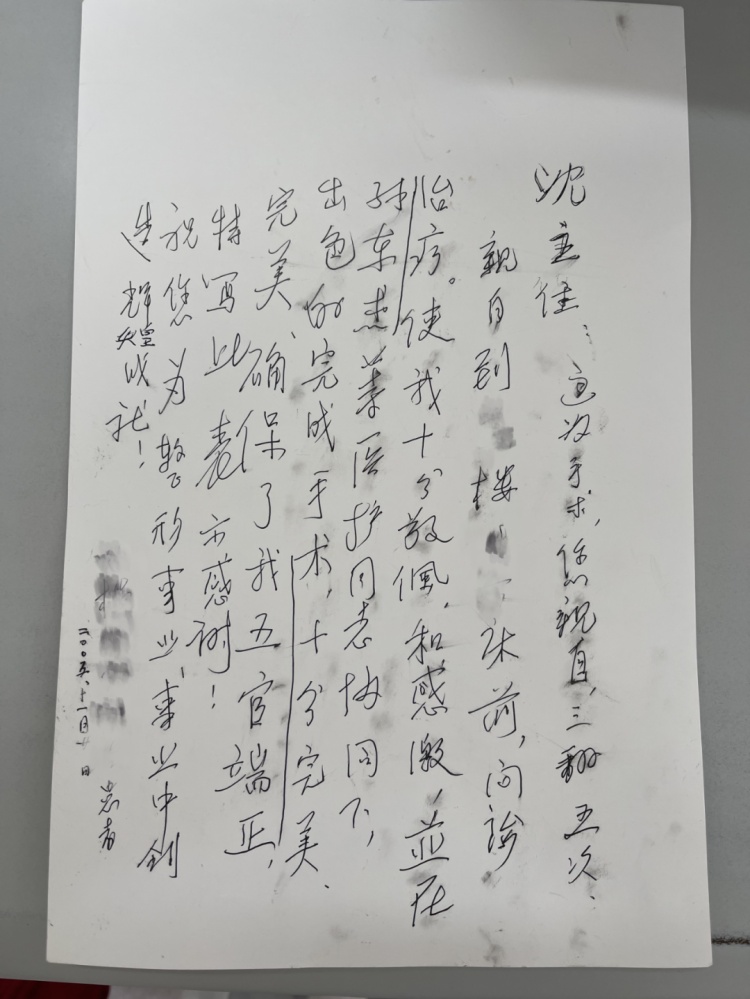 沈主任：这次手术，您亲自，三翻五次、
亲自到 楼 床前，问诊
治疗。使我十分敬佩，和感激，並在
孙东 医护同志协同下，
出色的完成手术，十分完美、
完美、确保了我五官端正，
特写此表示感谢！
祝您为整形事业、事业中创
造辉煌成就！
患者
二〇〇五、十一月 日